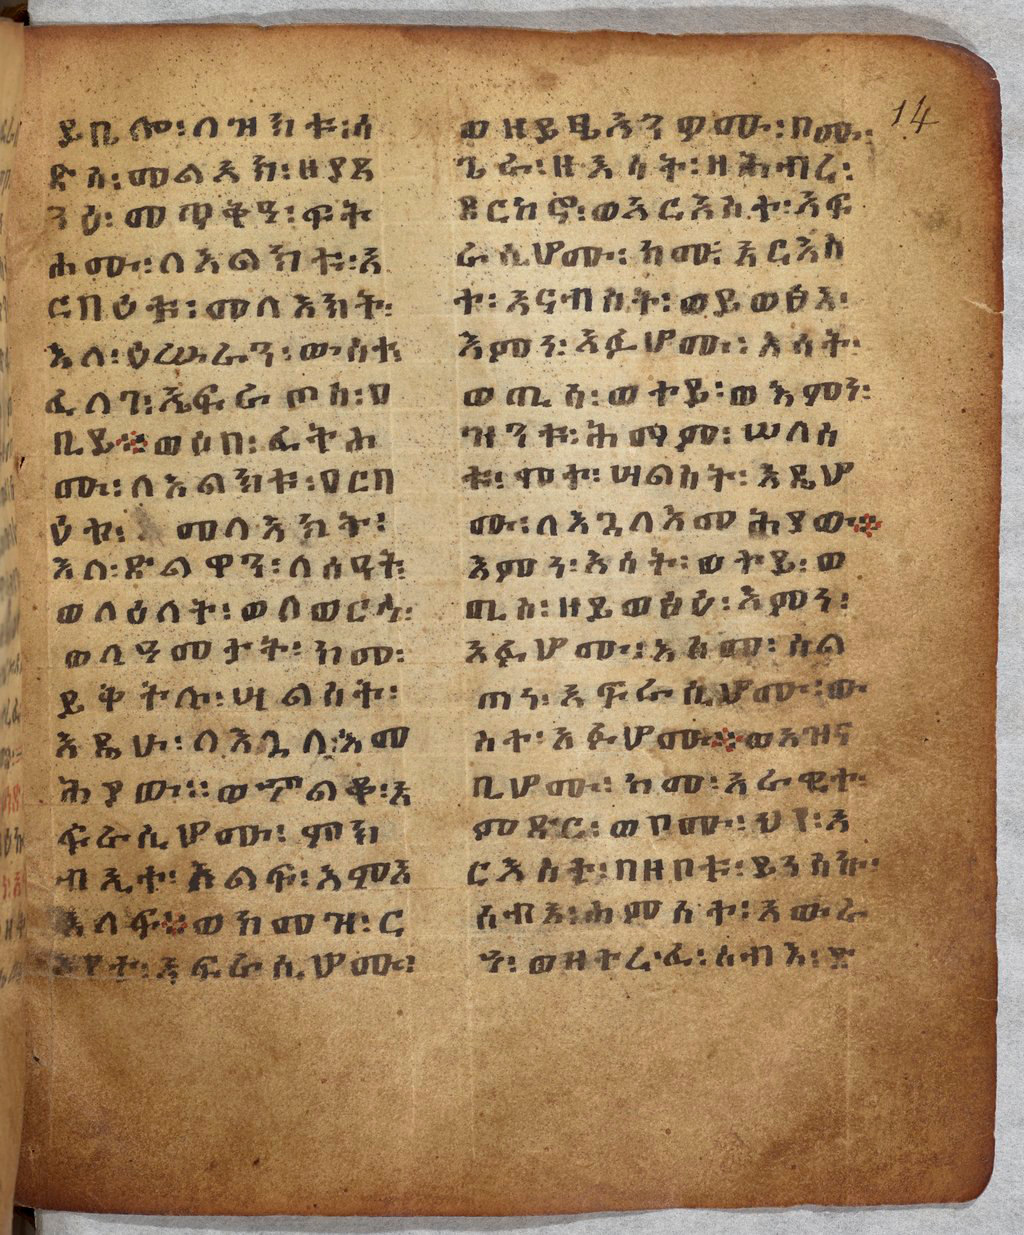 ይቤሎ፡ለዝክቱ፡ሳ
ድስ፡መልአክ፡ዘያጸ
ንዕ፡መጥቅዓ፡ፍት
ሖሙ፡ለእልክቱ፡አ
ርበዕቱ፡መላእክት፡
እለ፡ዕሡራን፡ውስተ
ፈለገ፡ኤፍራጦስ፡ዐ
ቢይ። ወሶበ፡ፈትሖ
ሙ፡ለእልክቱ፡ዐርበ
ዕቱ፡ መላእክት፡
እለ፡ድልዋን፡ለሰዓት፡
ወለዕለት፡ወለወርኅ፡
ወለዓመታት፡ከመ፡
ይቅትሉ፡ሣልስት፡
እዴሁ፡ለእጓለ፡እመ
ሕያው። ወኆልቆ፡አ
ፍራሲሆሙ፡ ምክ
ብዒተ፡አልፍ፡አምእ
እላፍ። ወከመዝ፡ር
ኢየቱ፡አፍራሲሆሙ፡
14
ወዘይፄአንዎሙ፡ቦሙ፡
ጌራ፡ዘእሳት፡ዘሕብረ፡
ደርከኖ፡ወአርእስተ፡አፍ
ራሲሆሙ፡ከመ፡አርእስ
ተ፡አናብስት፡ወይወፅእ፡
እምን፡አፉሆሙ፡እሳት፡
ወጢስ፡ወተይ፡ወእምን፡
ዝንቱ፡ሕማም፡ሠለስ
ቱ፡ሞተ፡ሣልስት፡እዴሆ
ሙ፡ለእጓለእመ ሕያው።
እምን፡እሳት፡ወተይ፡ወ
ጢስ፡ዘይወፅዕ፡እምን፡
አፉሆሙ፡እስመ፡ስል
ጣን፡አፍራሲሆሙ፡ው
ስተ፡አፉሆሙ። ወአዝና
ቢሆሙ፡ከመ፡አራዊተ፡
ምድር፡ወቦሙ፡ህየ፡አ
ርእስት፡በዘቦቱ፡ይንስኩ፡
ሰብእ፡ሕምስተ፡አውራ
ኀ፡ወዘተረፈ፡ሰብእ፡ድ